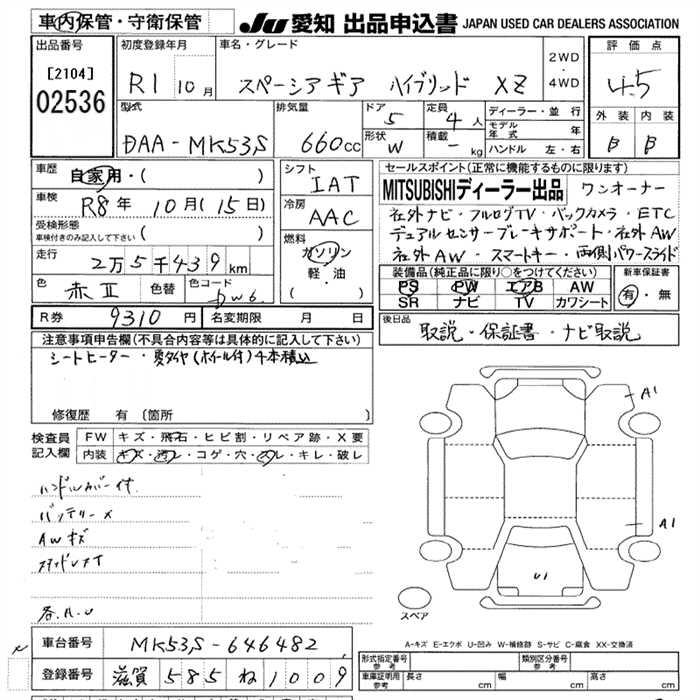 車内保管・守衛保管
JU 愛知 出品申込書 JAPAN USED CAR DEALERS ASSOCIATION
出品番号
[2104]
02536
初度登録年月
R1 10月
車名・グレード
スペーシア ギア ハイブリッド XZ
2WD
・
4WD
評価点
4.5
外装 内装
B B
型式
DAA-MK53S
排気量
660cc
ドア
5
定員
4人
形状
W
積載
- kg
ディーラー・並行
モデル年式 年
ハンドル 左・右
車歴
自家用・( )
車検
R8年 10月(15日)
受検形態
車検付きのみ記入して下さい ( )
走行
2万5千439km
色
赤II
色替
カラーコード
シフト
IAT
冷房
AAC
燃料
ガソリン
軽・油
( )
セールスポイント(正常に機能するものに限ります)
MITSUBISHIディーラー出品 ワンオーナー
社外ナビ・フルセグTV・バックカメラ・ETC
デュアルセンサーブレーキサポート・社外AW
社外AW・スマートキー・両側パワースライド
装備品(純正品に限り○をつけてください)
PS PW エアB AW
SR ナビ TV カワシート
新車保証書
有・無
R券 9310円
名変期限 月 日
後日品
取説・保証書・ナビ取説
注意事項申告欄(不具合内容等は具体的に記入して下さい)
シートヒーター・夏タイヤ(ホイール付)4本積込
修復歴 有(箇所 )
検査員記入欄
FW キズ・飛石・ヒビ割・リペア跡・X要
内装 キズ・汚レ・コゲ・穴・スレ・キレ・破レ
ハンドルカバー付
バッテリーX
AWキズ
スタッドレスタイヤ
各A.U
A1
A1
U1
スペア
A-キズ E-エクボ U-凹み W-補修跡 S-サビ C-腐食 XX-交換済
車台番号
MK53S-646482
登録番号
滋賀 585 ね 1009
形式指定番号
参考
類別区分番号
参考
車庫証明用
参考
長さ cm
幅 cm
高さ cm